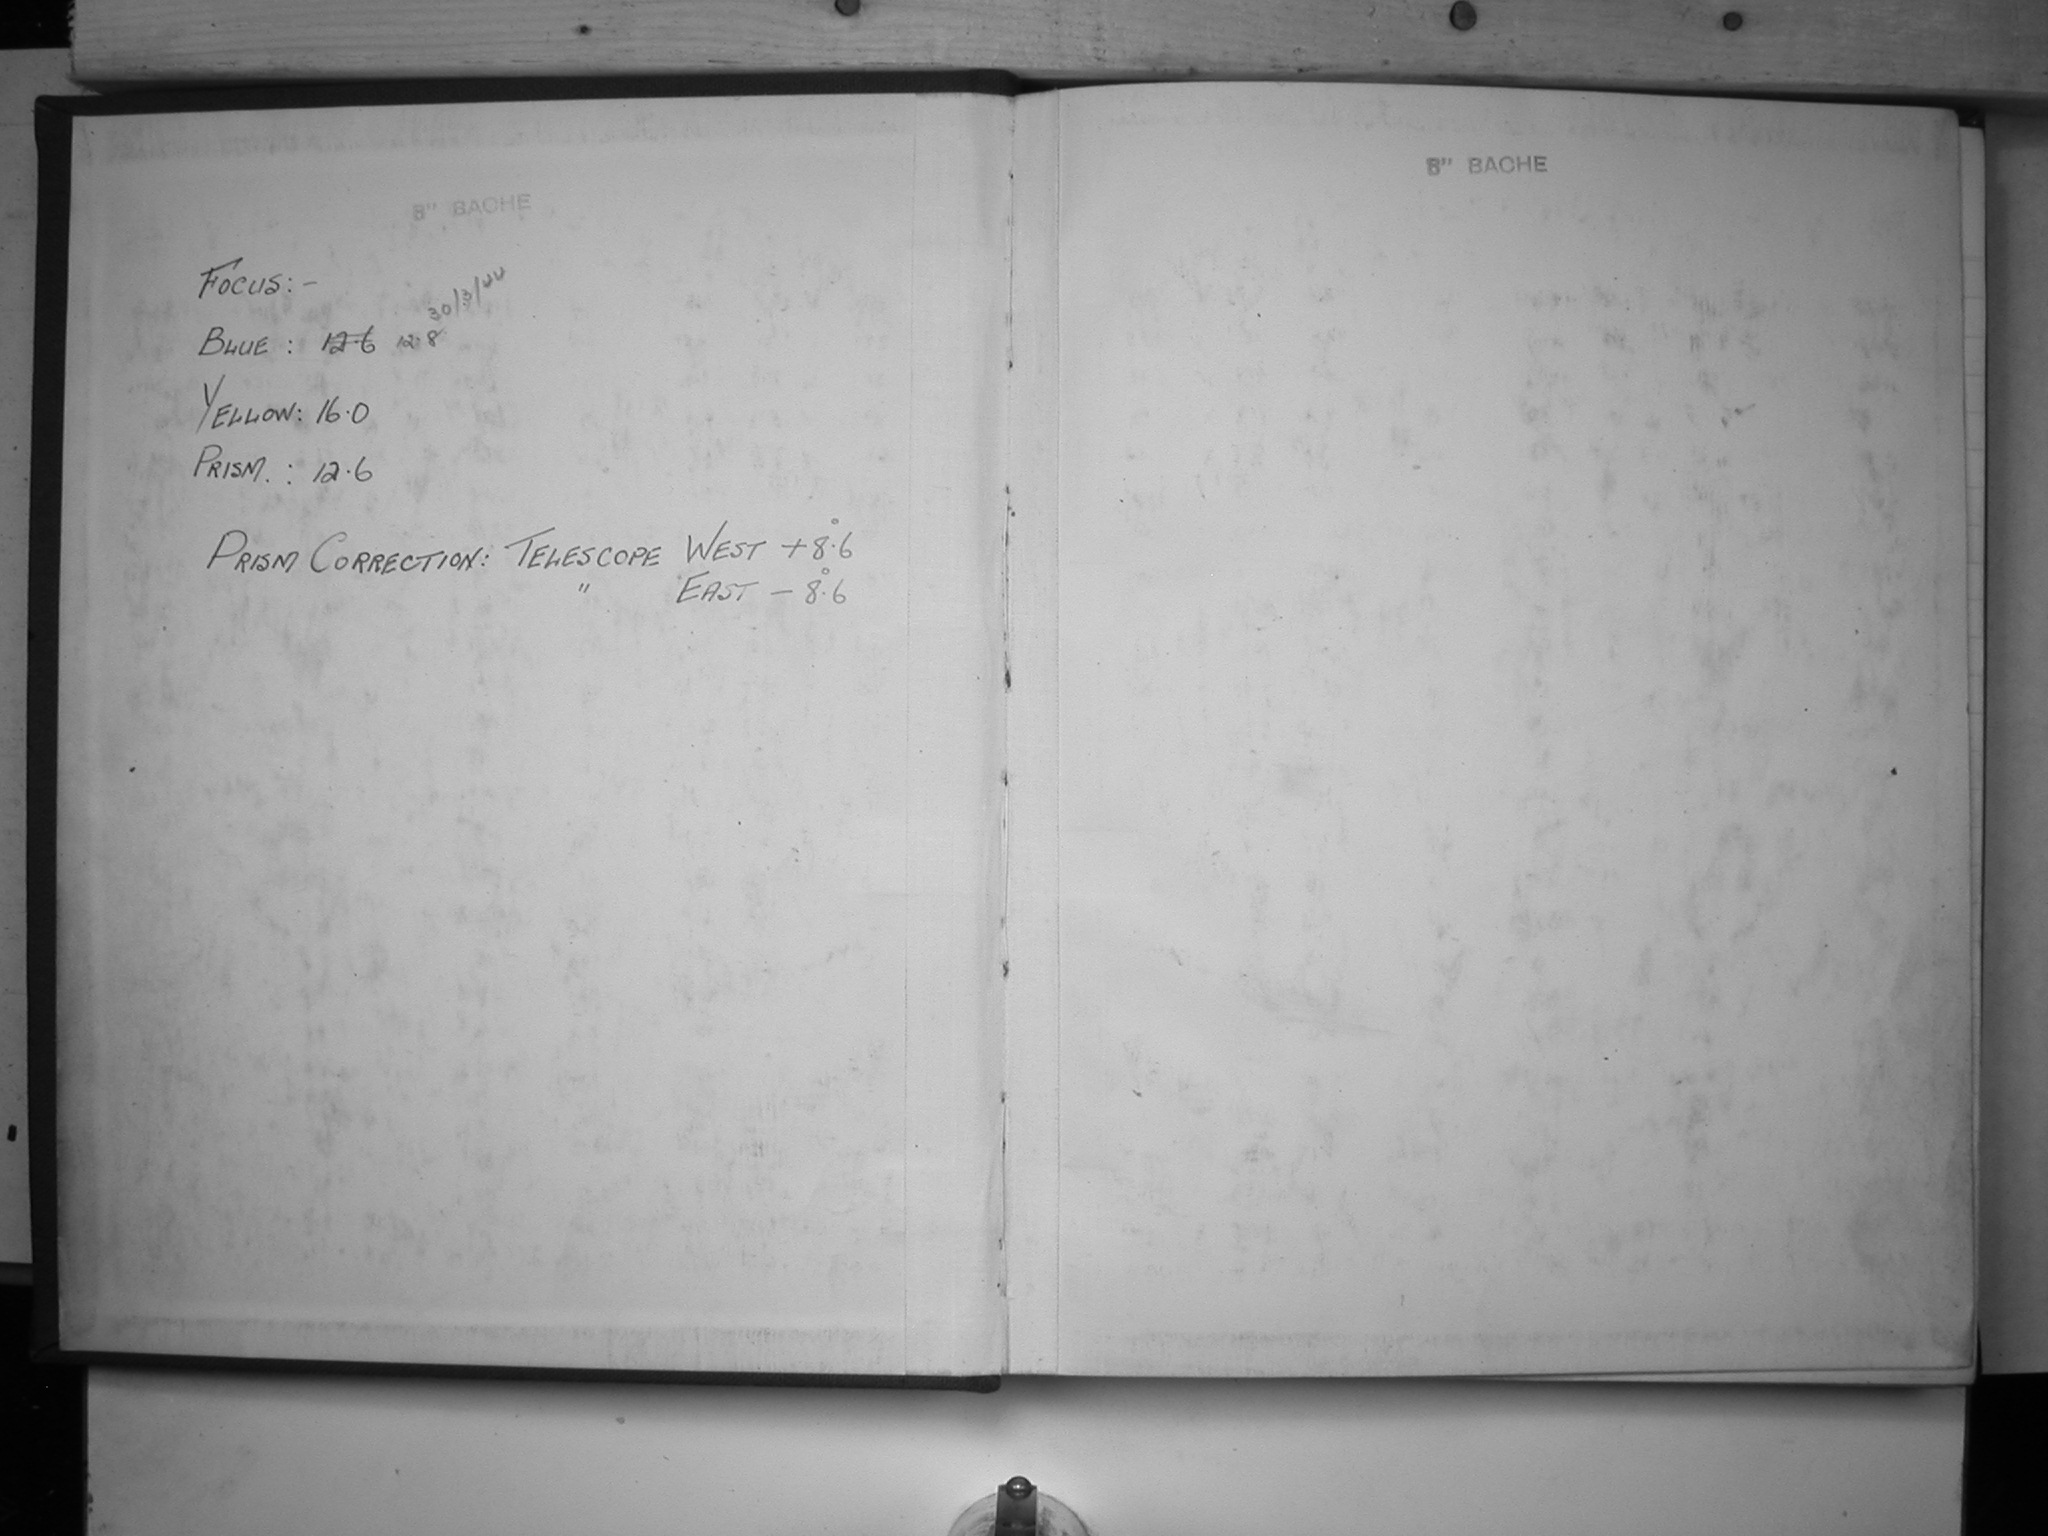 8" BACHE
FOCUS:-
30/3/44
BLUE : 12.6 12.8
YELLOW: 16.0
PRISM. : 12.6
PRISM CORRECTION: TELESCOPE WEST +8°.6
" EAST -8°.6
8" BACHE